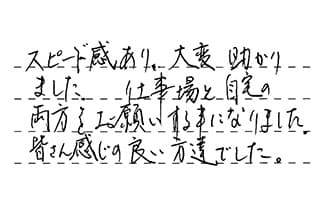 スピード感あり。大変助かり
ました。 仕事場と自宅の
両方をお願いする事になりました。
皆さん感じの良い方達でした。